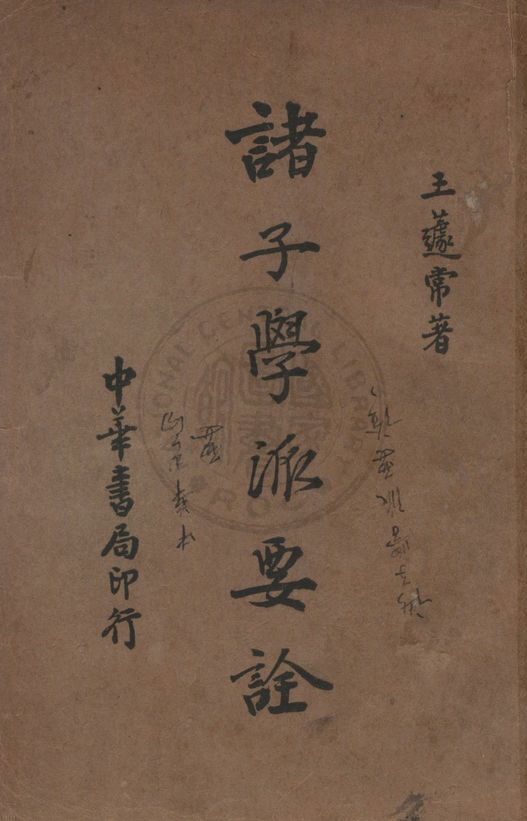 王蘧常著
諸子學派要詮
中華書局印行
NATIONAL CENTRAL LIBRARY
R.O.C.